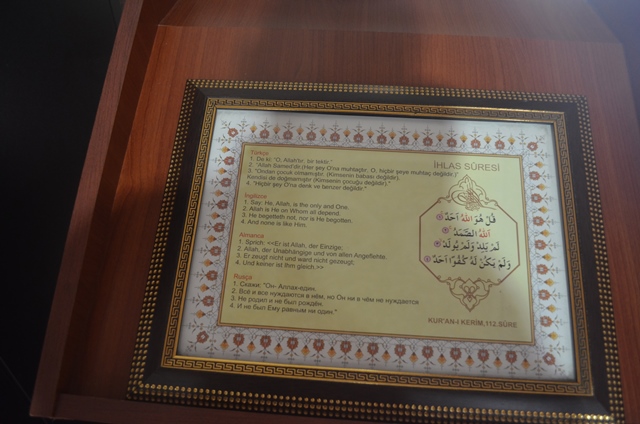 Türkçe
1. De ki: "O, Allah'tır, bir tektir."
2. "Allah Samed'dir.(Her şey O'na muhtaçtır, O, hiçbir şeye muhtaç değildir.)"
3. "Ondan çocuk olmamıştır. (Kimsenin babası değildir).
Kendisi de doğmamıştır (Kimsenin çocuğu değildir)."
4. "Hiçbir şey O'na denk ve benzer değildir."
İngilizce
1. Say: He, Allah, is the only and One.
2. Allah is He on Whom all depend.
3. He begetteth not, nor is He begotten.
4. And none is like Him.
Almanca
1. Sprich: <<Er ist Allah, der Einzige;
2. Allah, der Unabhängige und von allen Angeflehte.
3. Er zeugt nicht und ward nicht gezeugt;
4. Und keiner ist Ihm gleich.>>
Rusça
1. Скажи: "Он- Аллах-един,
2. Всё и все нуждаются в нём, но Он ни в чём не нуждается
3. Не родил и не был рождён.
4. И не был Ему равным ни один."
İHLAS SÛRESİ
قُلْ هُوَ اللّٰهُ اَحَدٌ
اَللّٰهُ الصَّمَدُ
لَمْ يَلِدْ وَلَمْ يُولَدْ
وَلَمْ يَكُنْ لَهُ كُفُوًا اَحَدٌ
KUR'AN-I KERİM,112.SÛRE